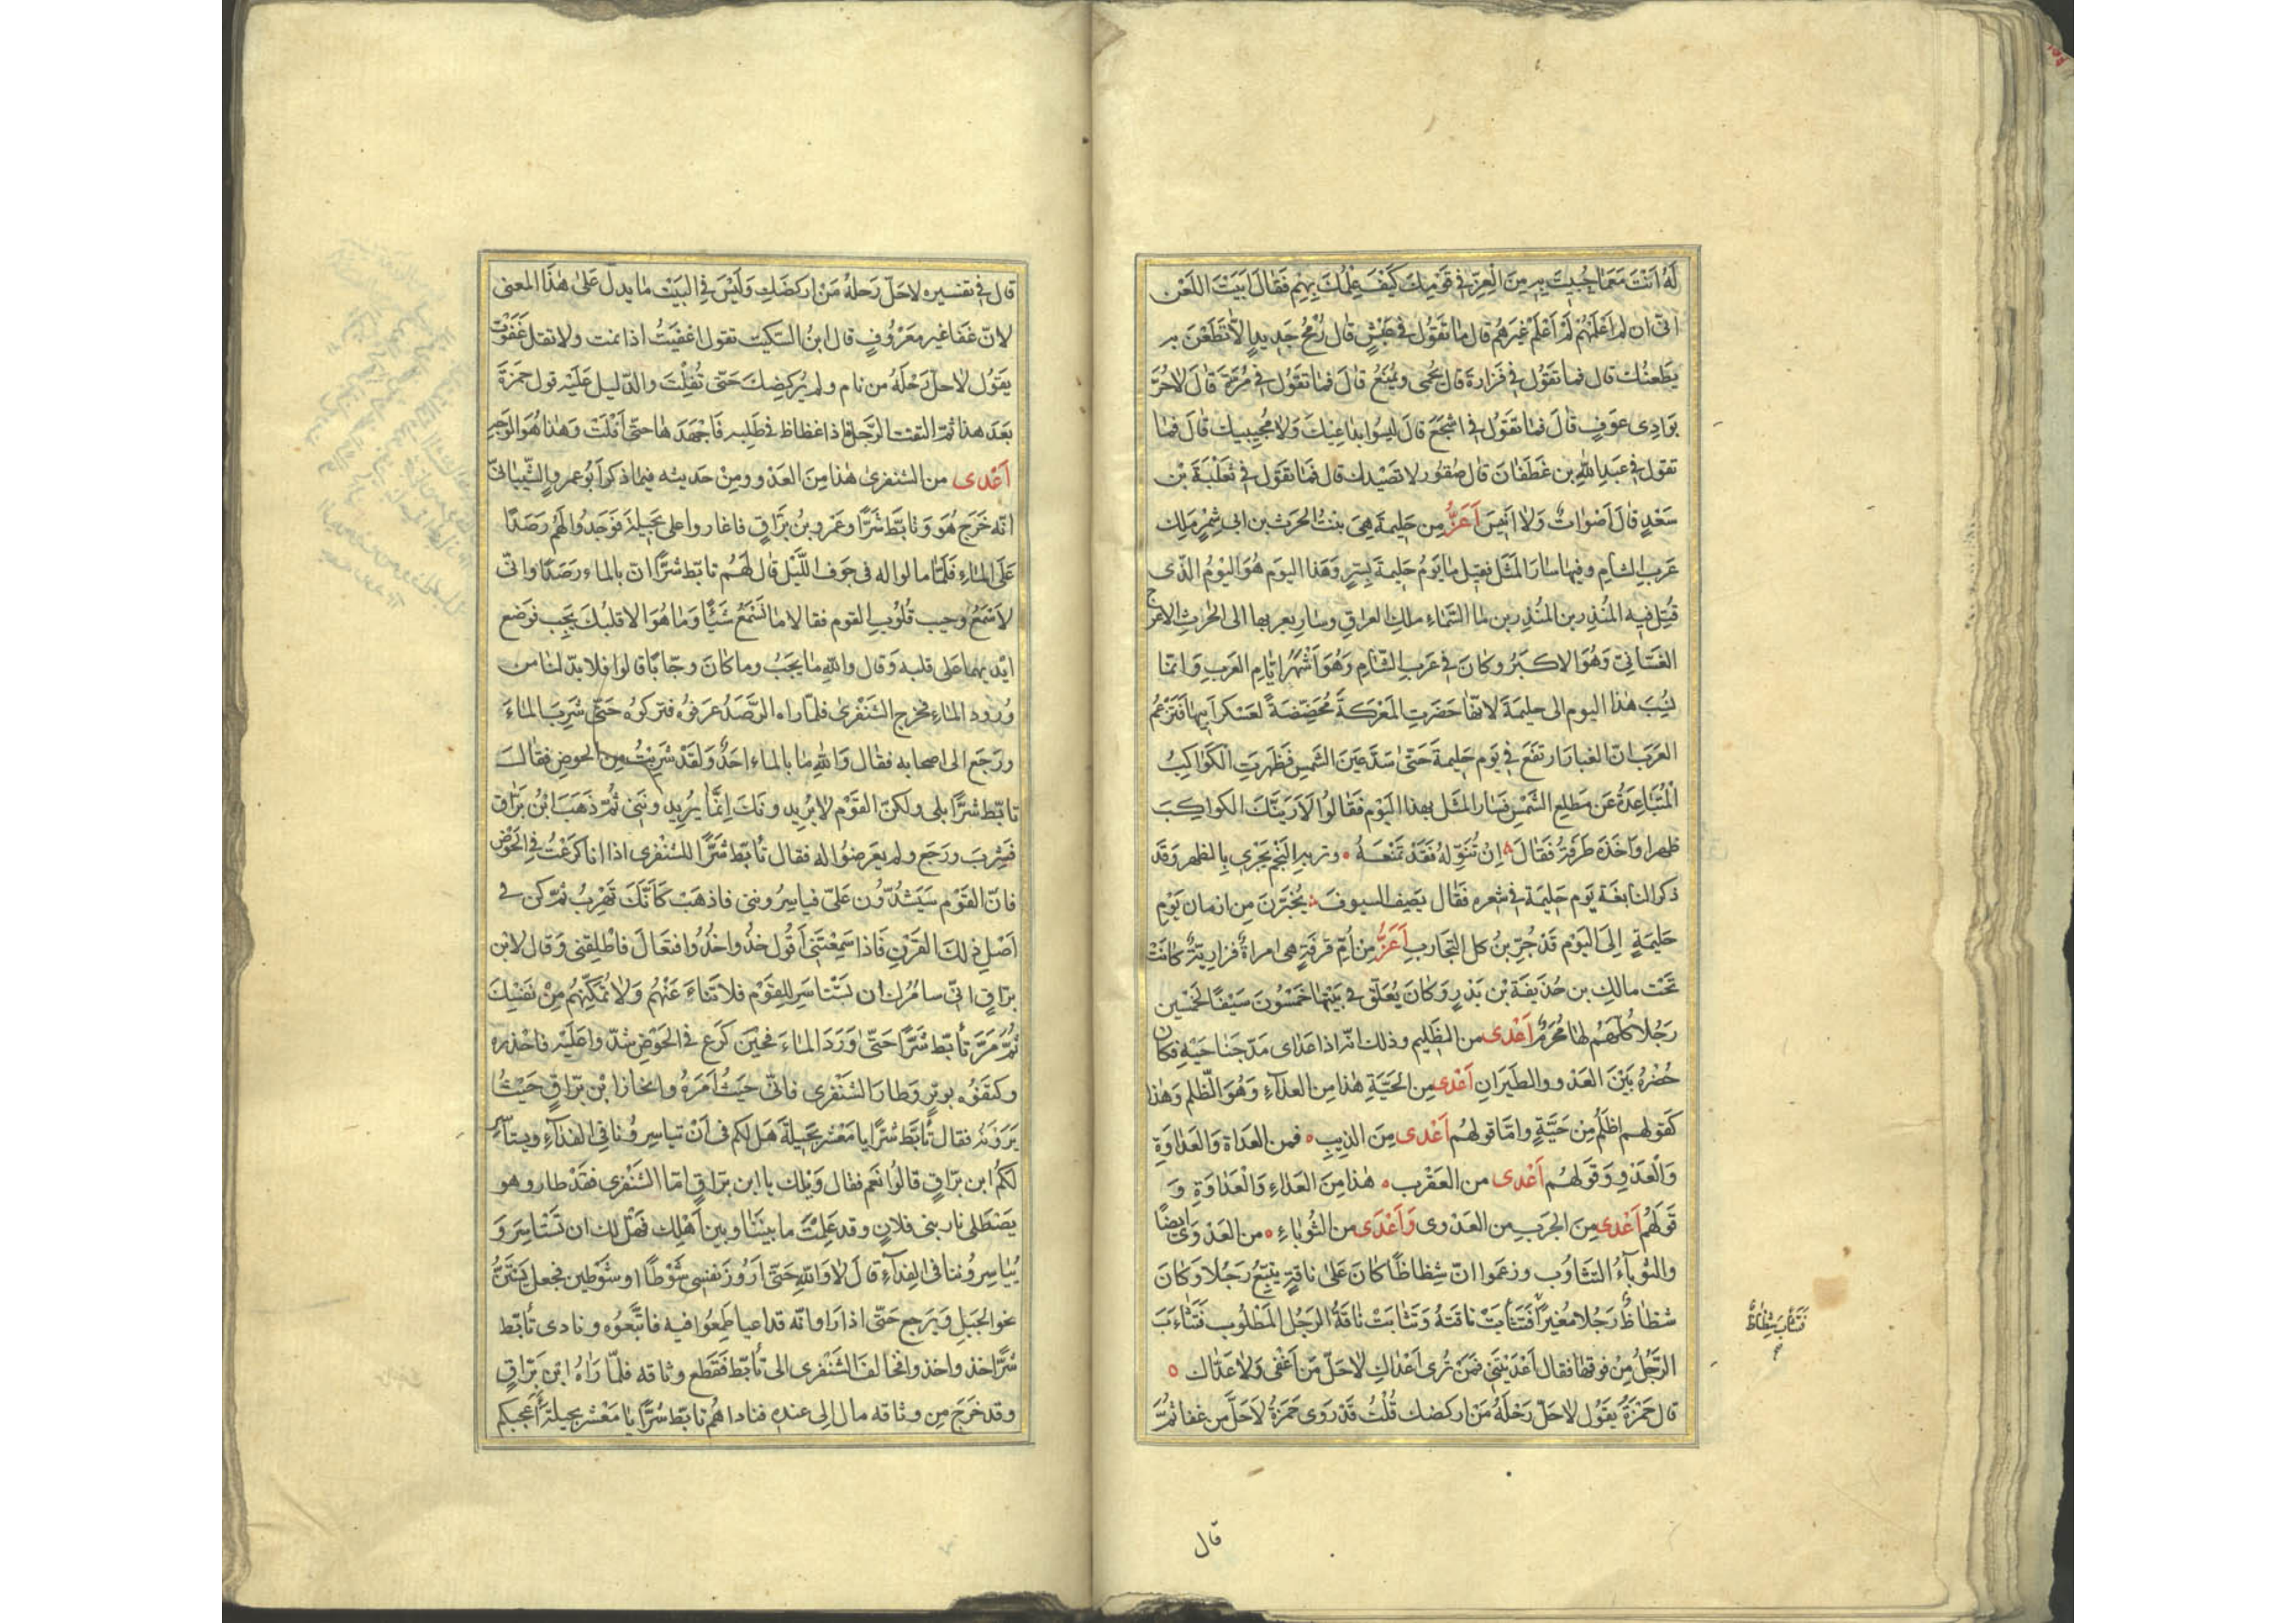 له انت مما حبيت به من العز في قومك كيف علمك بهم فقال ابيت اللعن
انى ان لم اعلمهم لم اعلم غيرهم قال ما تقول في عبس قال رمح جديد الا تطعن به
يطعنك قال فما تقول في فزارة قال يحمى ويمنع قال فما تقول في مرة قال لا حر
بوادى عوف قال فما تقول في اشجع قال ليسوا بداعيك ولا مجيبيك قال فما
تقول في عبد الله بن غطفان قال صقور لا تصيدك قال فما تقول في ثعلبة بن
سعد قال اصوات ولا انيس اعز من حليمة هي بنت الحرث بن ابى شمر ملك
عرب الشام وفيها سار المثل فقيل ما يوم حليمة بسر وهذا اليوم هو اليوم الذى
قتل فيه المنذر بن المنذر بن ما السماء ملك العراق وسار بعربها الى الحرث الاعرج
الغسانى وهو الاكبر وكان في عرب الشام وهو اشهر ايام العرب وانما
نسب هذا اليوم الى حليمة لانها حضرت المعركة محضضة لعسكر ابيها فتزعم
العرب ان الغبار ارتفع في يوم حليمة حتى سد عين الشمس فظهرت الكواكب
المتباعدة عن مطلع الشمس فسار المثل بهذا اليوم فقالوا لاريتك الكواكب
ظهرا واخذه طرفة فقال ان تنوله فقد تمنعه وتريه النجم يجرى بالظهر وقد
ذكر النابغة يوم حليمة في شعره فقال يصف السيوف تخيرن من ازمان يوم
حليمة الى اليوم قد جربن كل التجارب اعز من ام قرفة هى امراة فزارية كانت
تحت مالك بن حذيفة بن بدر وكان يعلق في بيتها خمسون سيفا لخمسين
رجلا كلهم لها محرم اعدى من الظليم وذلك انه اذا عداى مد جناحيه فكان
حضره بين العدو والطيران اعدى من الحية هذا من العداء وهو الظلم وهذا
كقولهم اظلم من حية واما قولهم اعدى من الذيب فمن العداة والعداوة
والعدو وقولهم اعدى من العقرب هذا من العداء والعداوة و
قولهم اعدى من الجرب من العدوى واعدى من الثوباء من العدوى ايضا
والثوباء التثاوب وزعموا ان شظاظا كان على ناقة يتبع رجلا وكان
شظاظ رجلا مغيرا فتثابت ناقته وتثابت ناقة الرجل المطلوب فتثاءب
الرجل من فوقها فقال اعديتنى فمن ترى اعداك لا حل من اغفى ولا عداك
قال حمزة يقول لا حل رحله من اركضك قلت قد روى حمزة لا حل من غفا ثم
فتثاب شظاظ
قال
قال في تفسيره لا حل رحله من اركضك وليس في البيت ما يدل على هذا المعنى
لان غفا غير معروف قال ابن السكيت تقول اغفيت اذا نمت ولا تقل غفوت
يقول لا حل رحله من نام ولم يركضك حتى تفلت والدليل عليه قول حمزة
بعد هذا ثم التفت الرجل فاذا شظاظ في طلبه فاجهدها حتى افلت وهذا هو الوجه
اعدى من الشنفرى هذا من العدو ومن حديثه فيما ذكر ابو عمرو الشيبانى
انه خرج هو وتابط شرا وعمرو بن براق فاغاروا على بجيلة فوجدوا لهم رصدا
على الماء فلما مالوا له في جوف الليل قال لهم تابط شرا ان بالماء رصدا وانى
لاسمع وجيب قلوب القوم فقالا ما نسمع شيئا وما هو الا قلبك يجب فوضع
ايديهما على قلبه وقال والله ما يجب وما كان وجابا قالوا فلا بد لنا من
ورود الماء فخرج الشنفرى فلما راه الرصد عرفوه فتركوه حتى شرب الماء
ورجع الى اصحابه فقال والله ما بالماء احد ولقد شربت من الحوض فقال
تابط شرا بلى ولكن القوم لا يريدونك انما يريدوننى ثم ذهب ابن براق
فشرب ورجع ولم يعرضوا له فقال تأبط شرا للشنفرى اذا انا كرعت في الحوض
فان القوم سيشدون على فياسروننى فاذهب كأنك تهرب ثم كن في
اصل ذلك القرن فاذا سمعتنى اقول خذوا خذوا فتعال فاطلقنى وقال لابن
براق انى سامرك ان تستاسر للقوم فلا تناء عنهم ولا تمكنهم من نفسك
ثم مر تأبط شرا حتى ورد الماء فحين كرع في الحوض شدوا عليه فاخذوه
وكتفوه بوتر وطار الشنفرى فاتى حيث امره وانحاز ابن براق حيث
يرونه فقال تأبط شرا يا معشر بجيلة هل لكم في ان تياسرونا في الفداء ويستأسر
لكم ابن براق قالوا نعم فقال ويلك يا ابن براق اما الشنفرى فقد طار وهو
يصطلى نار بنى فلان وقد علمت ما بيننا وبين اهلك فهل لك ان تستاسر و
يياسروننا في الفداء قال لا والله حتى اروز نفسى شوطا او شوطين فجعل يستن
نحو الجبل ويرجع حتى اذا راوا انه قد اعيا طمعوا فيه فاتبعوه ونادى تأبط
شرا خذوا خذوا فخالف الشنفرى الى تأبط فقطع وثاقه فلما راه ابن براق
وقد خرج من وثاقه مال الى عنده فناداهم تابط شرا يا معشر بجيلة أأعجبكم